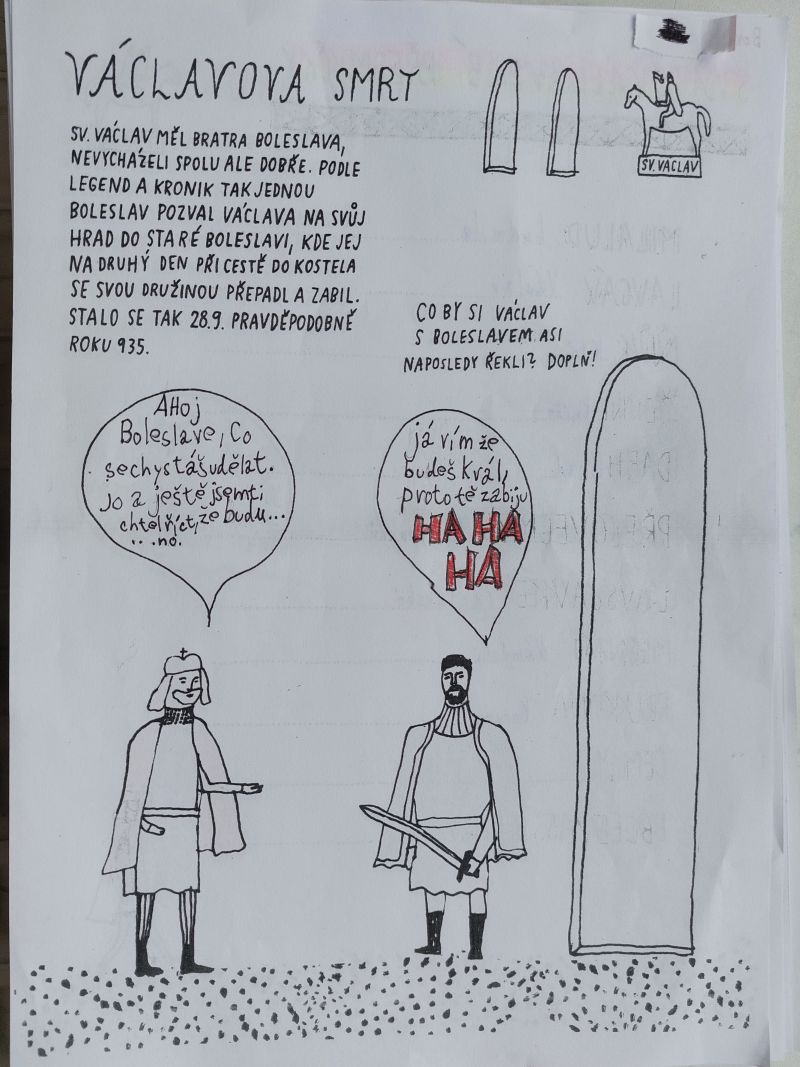 VÁCLAVOVA SMRT
SV. VÁCLAV MĚL BRATRA BOLESLAVA,
NEVYCHÁZELI SPOLU ALE DOBŘE. PODLE
LEGEND A KRONIK TAK JEDNOU
BOLESLAV POZVAL VÁCLAVA NA SVŮJ
HRAD DO STARÉ BOLESLAVI, KDE JEJ
NA DRUHÝ DEN PŘI CESTĚ DO KOSTELA
SE SVOU DRUŽINOU PŘEPADL A ZABIL.
STALO SE TAK 28.9. PRAVDĚPODOBNĚ
ROKU 935.
SV. VÁCLAV
CO BY SI VÁCLAV
S BOLESLAVEM ASI
NAPOSLEDY ŘEKLI? DOPLŇ!
AHOJ
Boleslave, Co
sechystášudělat.
Jo a ještě jsemti
chtěl říct, že budu...
...no.
já vím že
budeš král,
proto tě zabiju
HA HA
HA